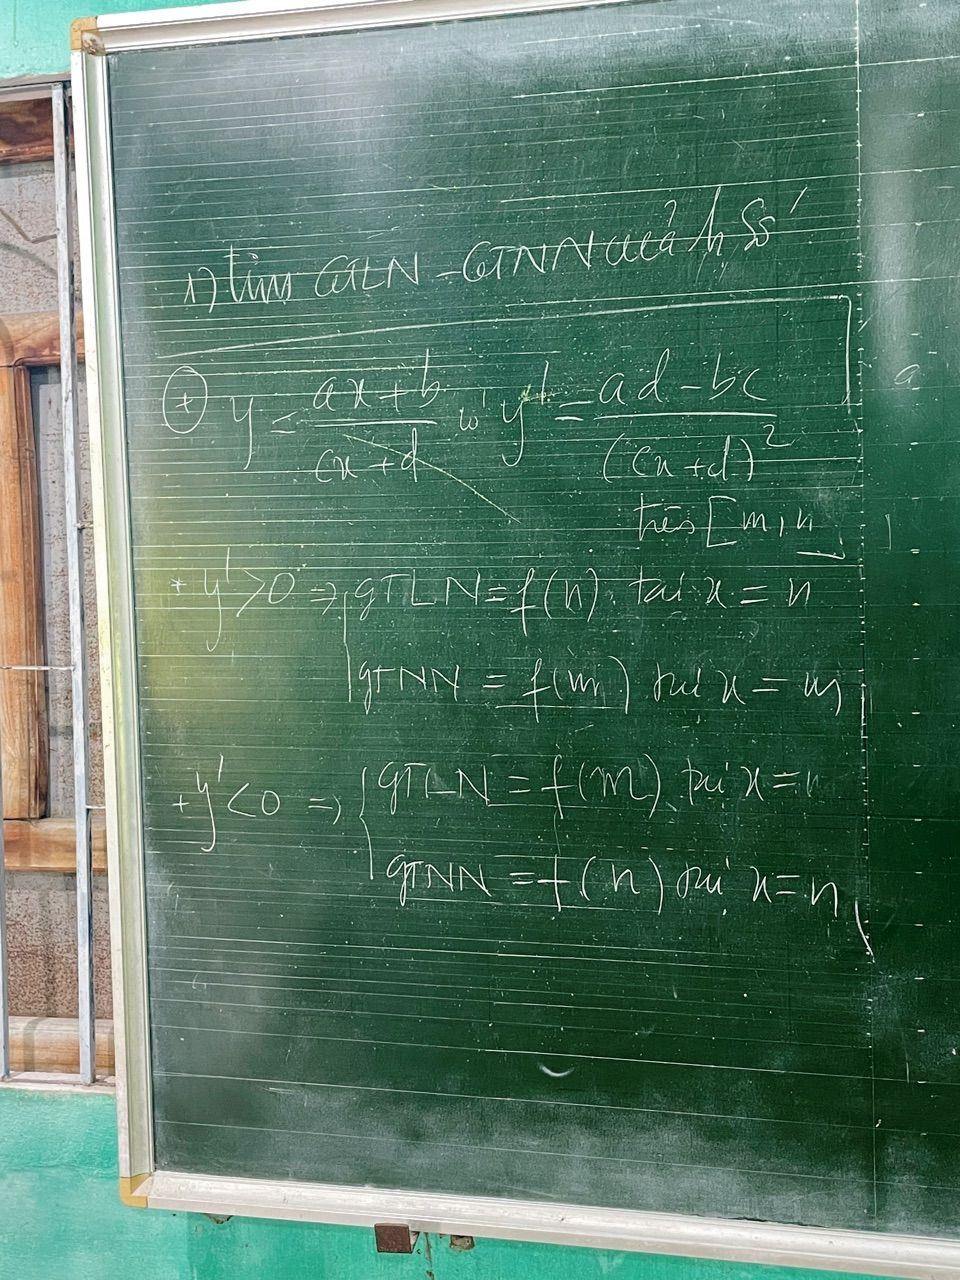 1) Tìm GTLN - GTNN của h Số
+ y = ax+b / cx+d có y' = ad-bc / (cx+d)²
trên [m, n]
* y' > 0 => { GTLN = f(n) tại x = n
GTNN = f(m) tại x = m
+ y' < 0 => { GTLN = f(m) tại x =
GTNN = f(n) tại x = n